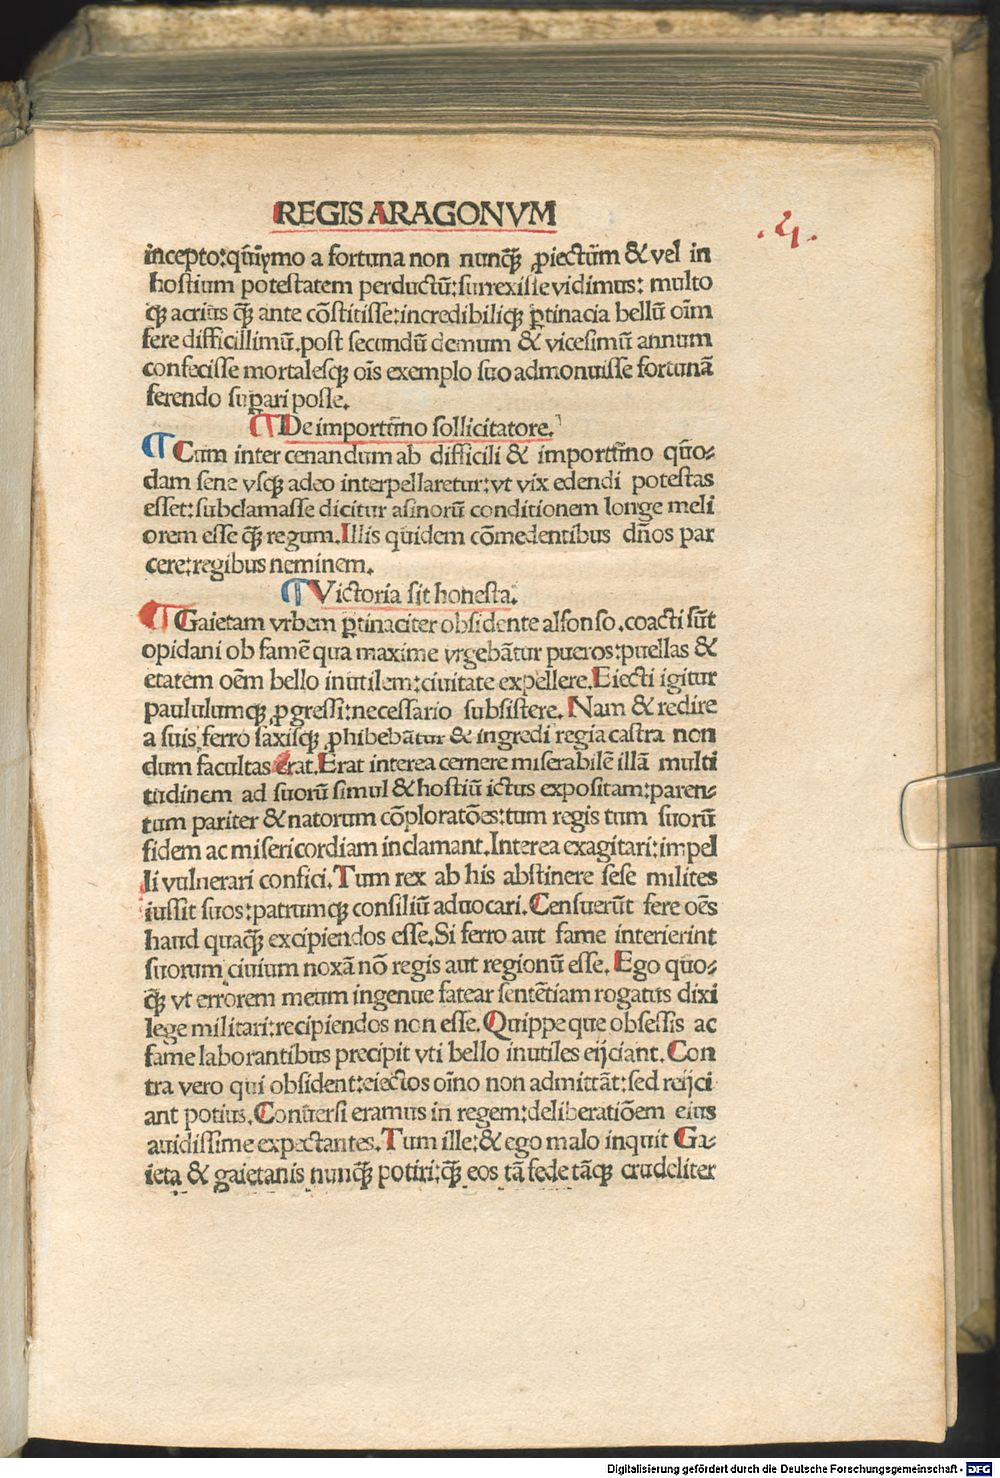 REGIS ARAGONVM
.4.
incepto:qūīymo a fortuna non nunq̄ꝫ ꝓiectūm & vel in
hostium potestatem perductū:surrexisse vidimus: multo
qꝫ acrius q̄ꝫ ante cōstitisse:incredibiliqꝫ ꝑtinacia bellū oīm
fere difficillimū.post secundū demum & vicesimū annum
confecisse mortalesqꝫ oīs exemplo suo admonuisse fortunā
ferendo suꝑari posse.
¶De importūno sollicitatore.
¶Cum inter cenandum ab difficili & importūno quō⸗
dam sene vsqꝫ adeo interpellaretur:vt vix edendi potestas
esset:subclamasse dicitur asinorū conditionem longe meli
orem esse q̄ꝫ regum.Illis quidem cōmedentibus dn̄os par
cere:regibus neminem.
¶Victoria sit honesta.
¶Gaietam vrbem ꝑtinaciter obsidente alfonso.coacti sūt
opidani ob famē qua maxime vrgebātur pueros:puellas &
etatem oēm bello inutilem:ciuitate expellere.Eiecti igitur
paululumqꝫ ꝓgressi:necessario subsistere. Nam & redire
a suis ferro saxisqꝫ ꝓhibebātur & ingredi regia castra non
dum facultas erat.Erat interea cernere miserabilē illā multi
tudinem ad suorū simul & hostiū ictus expositam:paren⸗
tum pariter & natorum cōploratōes:tum regis tum suorū
fidem ac misericordiam inclamant.Interea exagitari:impel
li vulnerari confici.Tum rex ab his abstinere sese milites
iussit suos:patrumqꝫ consiliū aduocari.Censuerūt fere oēs
haud quaq̄ꝫ excipiendos esse.Si ferro aut fame interierint
suorum ciuium noxā nō regis aut regionū esse. Ego quo⸗
q̄ꝫ vt errorem meum ingenue fatear sentētiam rogatus dixi
lege militari:recipiendos non esse.Quippe que obsessis ac
fame laborantibus precipit vti bello inutiles eijciant.Con
tra vero qui obsident:eiectos oīno non admittāt:sed reijci
ant potius.Conuersi eramus in regem:deliberatiōem eius
auidissime expectantes.Tum ille:& ego malo inquit Ga⸗
ieta & gaietanis nunq̄ꝫ potiri:q̄ꝫ eos tā fede tāqꝫ crudeliter
Digitalisierung gefördert durch die Deutsche Forschungsgemeinschaft - DFG